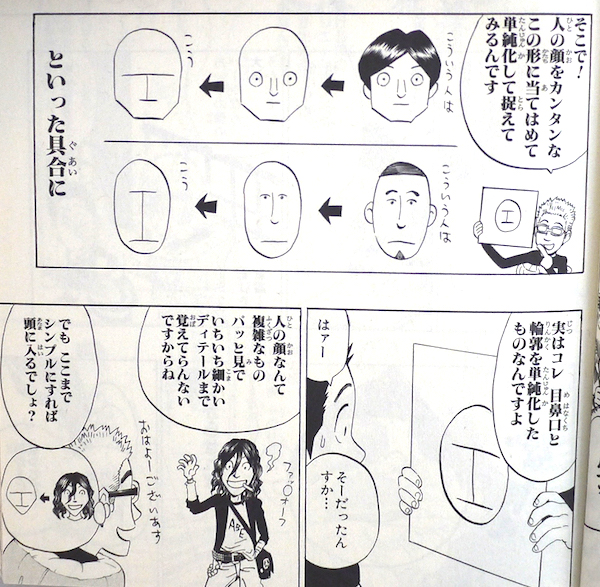 そこで!
人の顔をカンタンな
この形に当てはめて
単純化して捉えて
みるんです
こういう人は
こう
こういう人は
こう
といった具合に
実はコレ 目鼻口と
輪郭を単純化した
ものなんですよ
はァー
そーだったん
すか…
人の顔なんて
複雑なもの
パッと見で
いちいち細かい
ディテールまで
覚えてらんない
ですからね
でも ここまで
シンプルにすれば
頭に入るでしょ?
おはよーございます